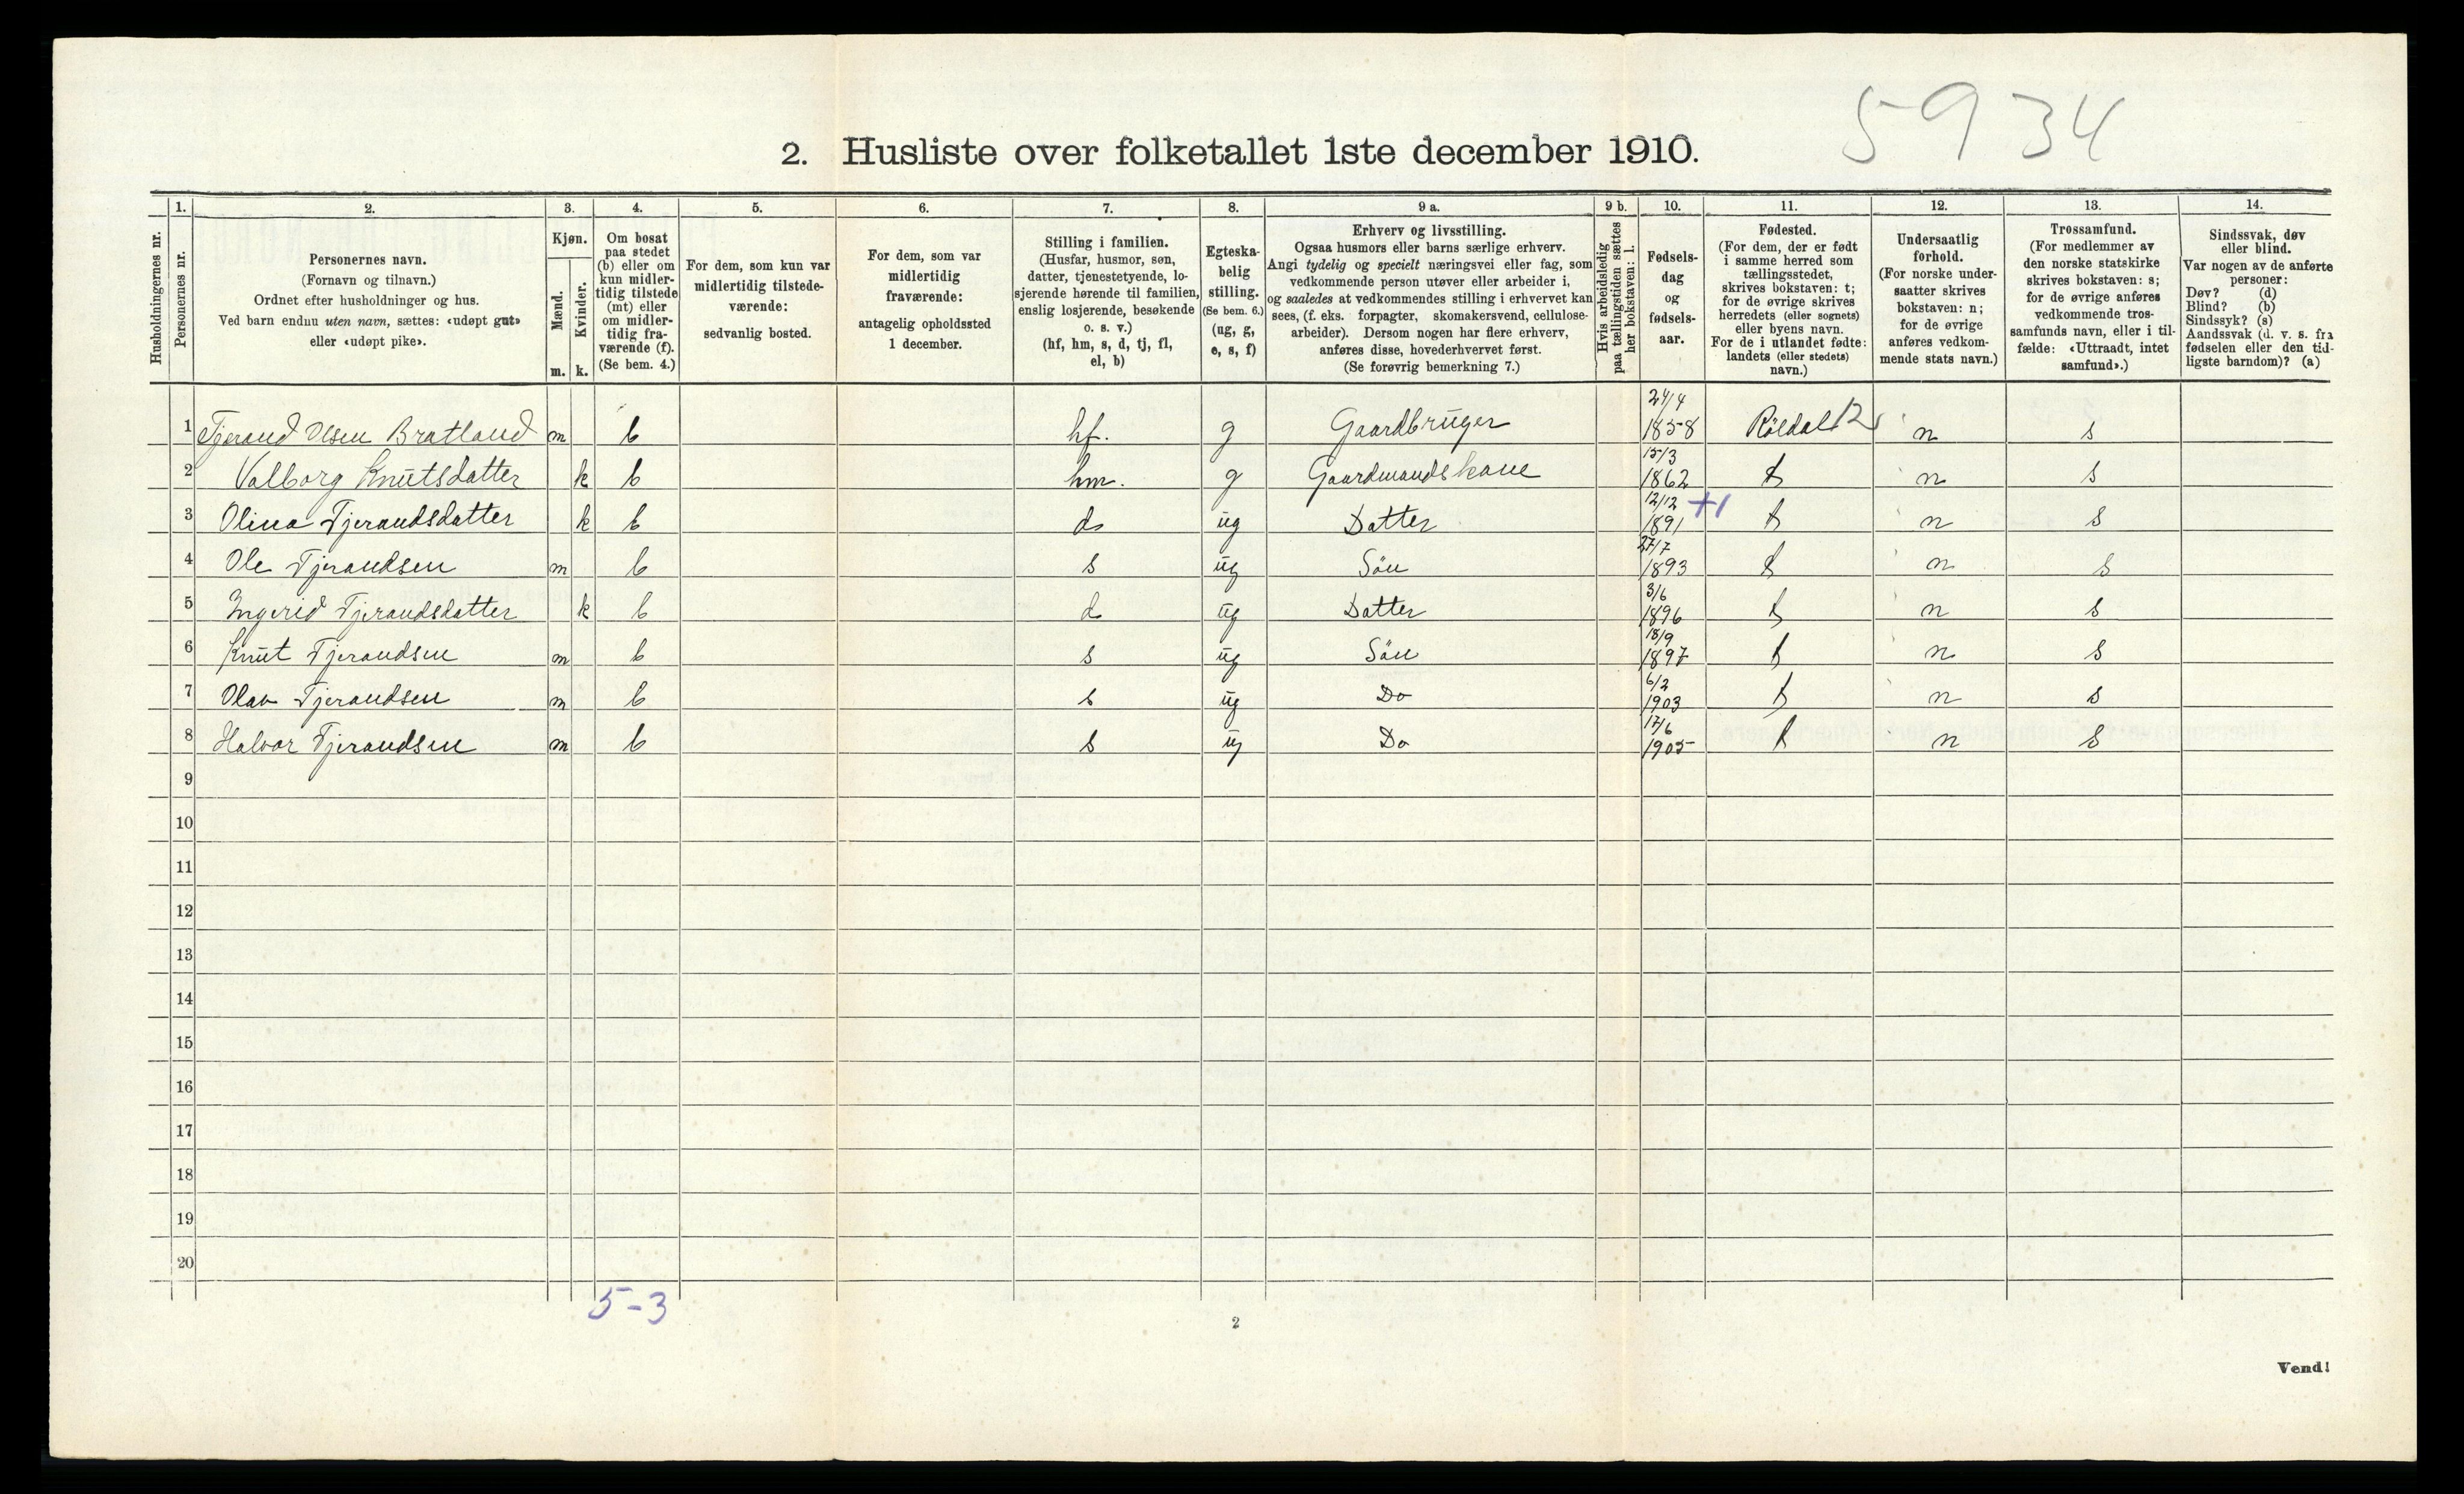 5934
2. Husliste over folketallet 1ste december 1910.
Husholdningernes nr.
1.
Personernes nr.
2.
Personernes navn.
(Fornavn og tilnavn.)
Ordnet efter husholdninger og hus.
Ved barn endnu uten navn, sættes: «udøpt gut»
eller «udøpt pike».
3.
Kjøn.
Mænd.
Kvinder.
m. k.
4.
Om bosat
paa stedet
(b) eller om
kun midler-
tidig tilstede
(mt) eller
om midler-
tidig fra-
værende (f).
(Se bem. 4.)
5.
For dem, som kun var
midlertidig tilstede-
værende:
sedvanlig bosted.
6.
For dem, som var
midlertidig
fraværende:
antagelig opholdssted
1 december.
7.
Stilling i familien.
(Husfar, husmor, søn,
datter, tjenestetyende, lo-
sjerende hørende til familien,
enslig losjerende, besøkende
o. s. v.)
(hf, hm, s, d, tj, fl,
el, b)
8.
Egteska-
belig
stilling.
(Se bem. 6.)
(ug, g,
e, s, f)
9 a.
Erhverv og livsstilling.
Ogsaa husmors eller barns særlige erhverv.
Angi tydelig og specielt næringsvei eller fag, som
vedkommende person utøver eller arbeider i,
og saaledes at vedkommendes stilling i erhvervet kan
sees, (f. eks. forpagter, skomakersvend, cellulose-
arbeider). Dersom nogen har flere erhverv,
anføres disse, hovederhvervet først.
(Se forøvrig bemerkning 7.)
9 b.
Hvis arbeidsledig
paa tællingstiden sættes
her bokstaven: l.
10.
Fødsels-
dag
og
fødsels-
aar.
11.
Fødested.
(For dem, der er født
i samme herred som
tællingsstedet,
skrives bokstaven: t;
for de øvrige skrives
herredets (eller sognets)
eller byens navn.
For de i utlandet fødte:
landets (eller stedets)
navn.)
12.
Undersaatlig
forhold.
(For norske under-
saatter skrives
bokstaven: n;
for de øvrige
anføres vedkom-
mende stats navn.)
13.
Trossamfund.
(For medlemmer av
den norske statskirke
skrives bokstaven: s;
for de øvrige anføres
vedkommende tros-
samfunds navn, eller i til-
fælde: «Uttraadt, intet
samfund».)
14.
Sindssvak, døv
eller blind.
Var nogen av de anførte
personer:
Døv? (d)
Blind? (b)
Sindssyk? (s)
Aandssvak (d. v. s. fra
fødselen eller den tid-
ligste barndom)? (a)
1 Tjerand Olsen Bratland m b hf. g Gaardbruger 24/4 1858 Røldal 12 n s
2 Valborg Knutsdatter k b hm. g Gaardmandskone 15/3 1862 t n s
3 Olina Tjerandsdatter k b d ug Datter 12/12 1891 +1 t n s
4 Ole Tjerandsen m b s ug Sön 27/7 1893 t n s
5 Ingerid Tjerandsdatter k b d ug Datter 3/6 1896 t n s
6 Knut Tjerandsen m b s ug Sön 18/9 1897 t n s
7 Olav Tjerandsen m b s ug Do 6/2 1903 t n s
8 Halvor Tjerandsen m b s ug Do 17/6 1905 t n s
9
10
11
12
13
14
15
16
17
18
19
20
5-3
2
Vend!